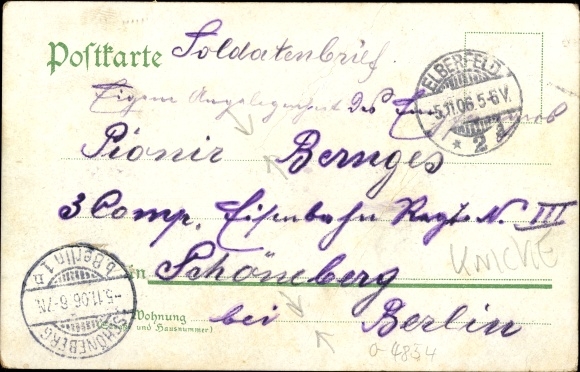 Postkarte Soldatenbrief.
Eigene Angelegenheit des Empfängers
ELBERFELD
-5.11.06.5-6V.
* 2 d
Pionir Bernges
3 Comp. Eisenbahn Regt. N. III
KNICKE
in Schöneberg
Wohnung
und Hausnummer)
bei Berlin
o 4834
SCHÖNEBERG b. Berlin 1
-5.11.06.6-7N.